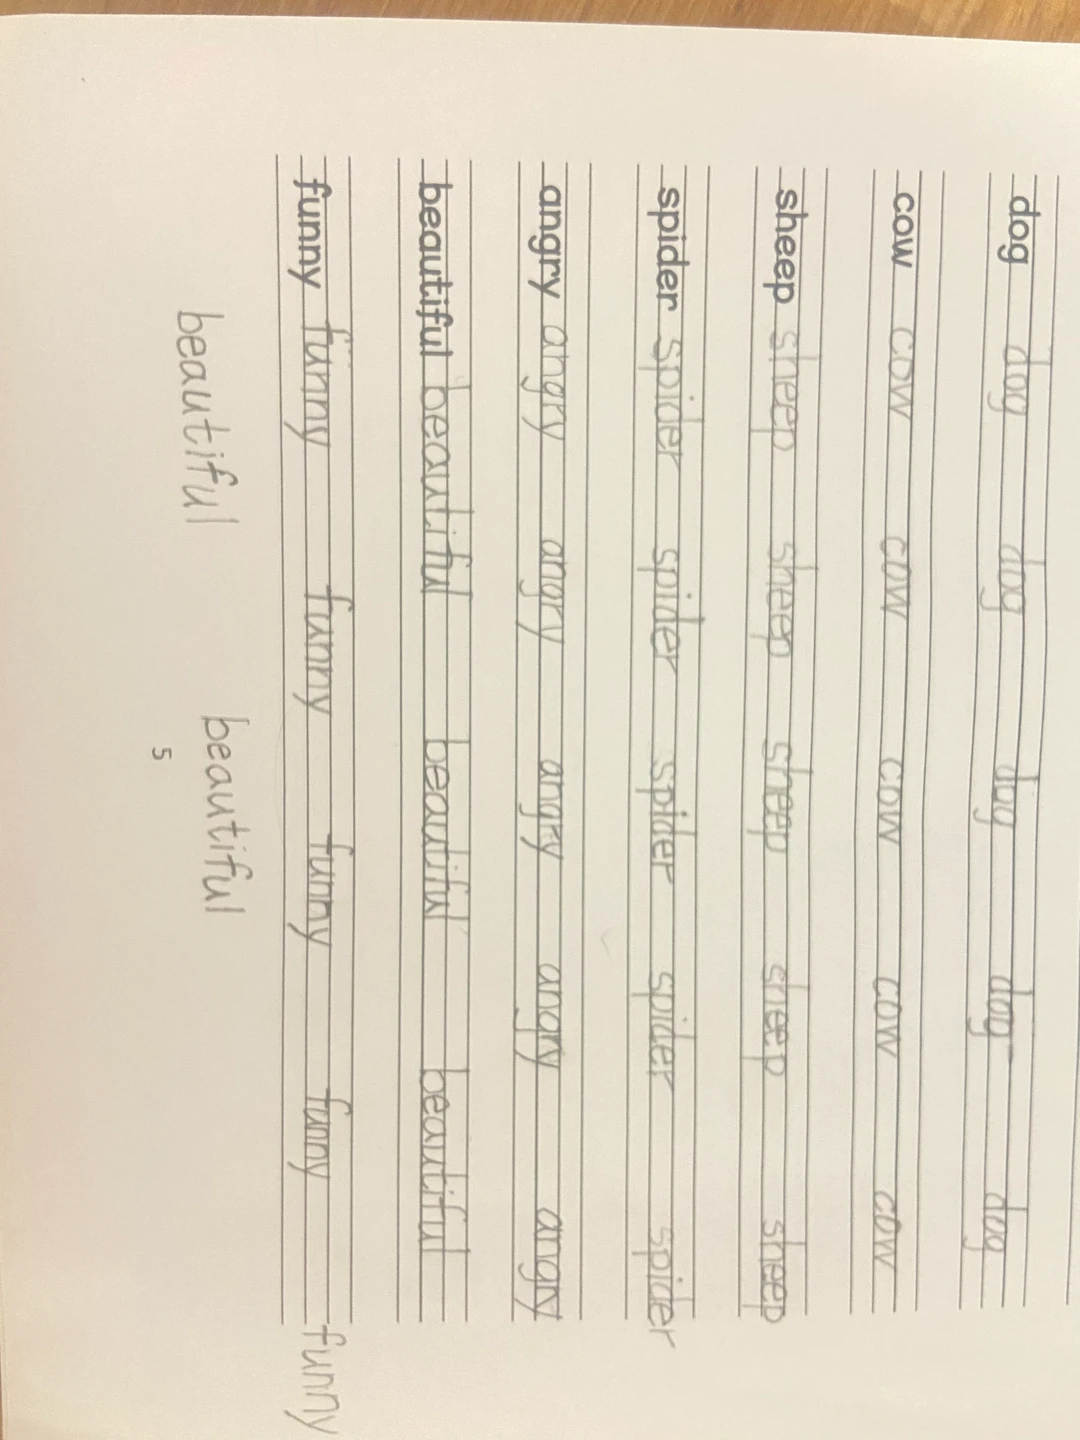 dog dog dog dog dog dog
cow cow cow cow cow cow
sheep sheep sheep sheep sheep sheep
spider spider spider spider spider spider
angry angry angry angry angry angry
beautiful beautiful beautiful beautiful
funny funny funny funny funny funny
beautiful beautiful
5